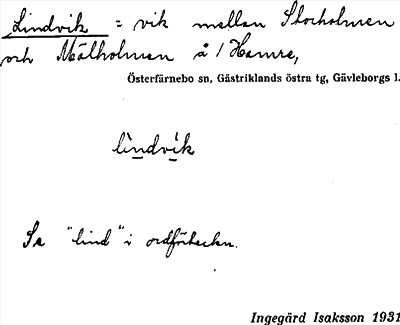 Lindvik = vik mellan Storholmen
och Målholmen å 1 Hamre,
Österfärnebo sn, Gästriklands östra tg, Gävleborgs l.
lìndvík
Se "lind" i ordförteckn.
Ingegärd Isaksson 1931